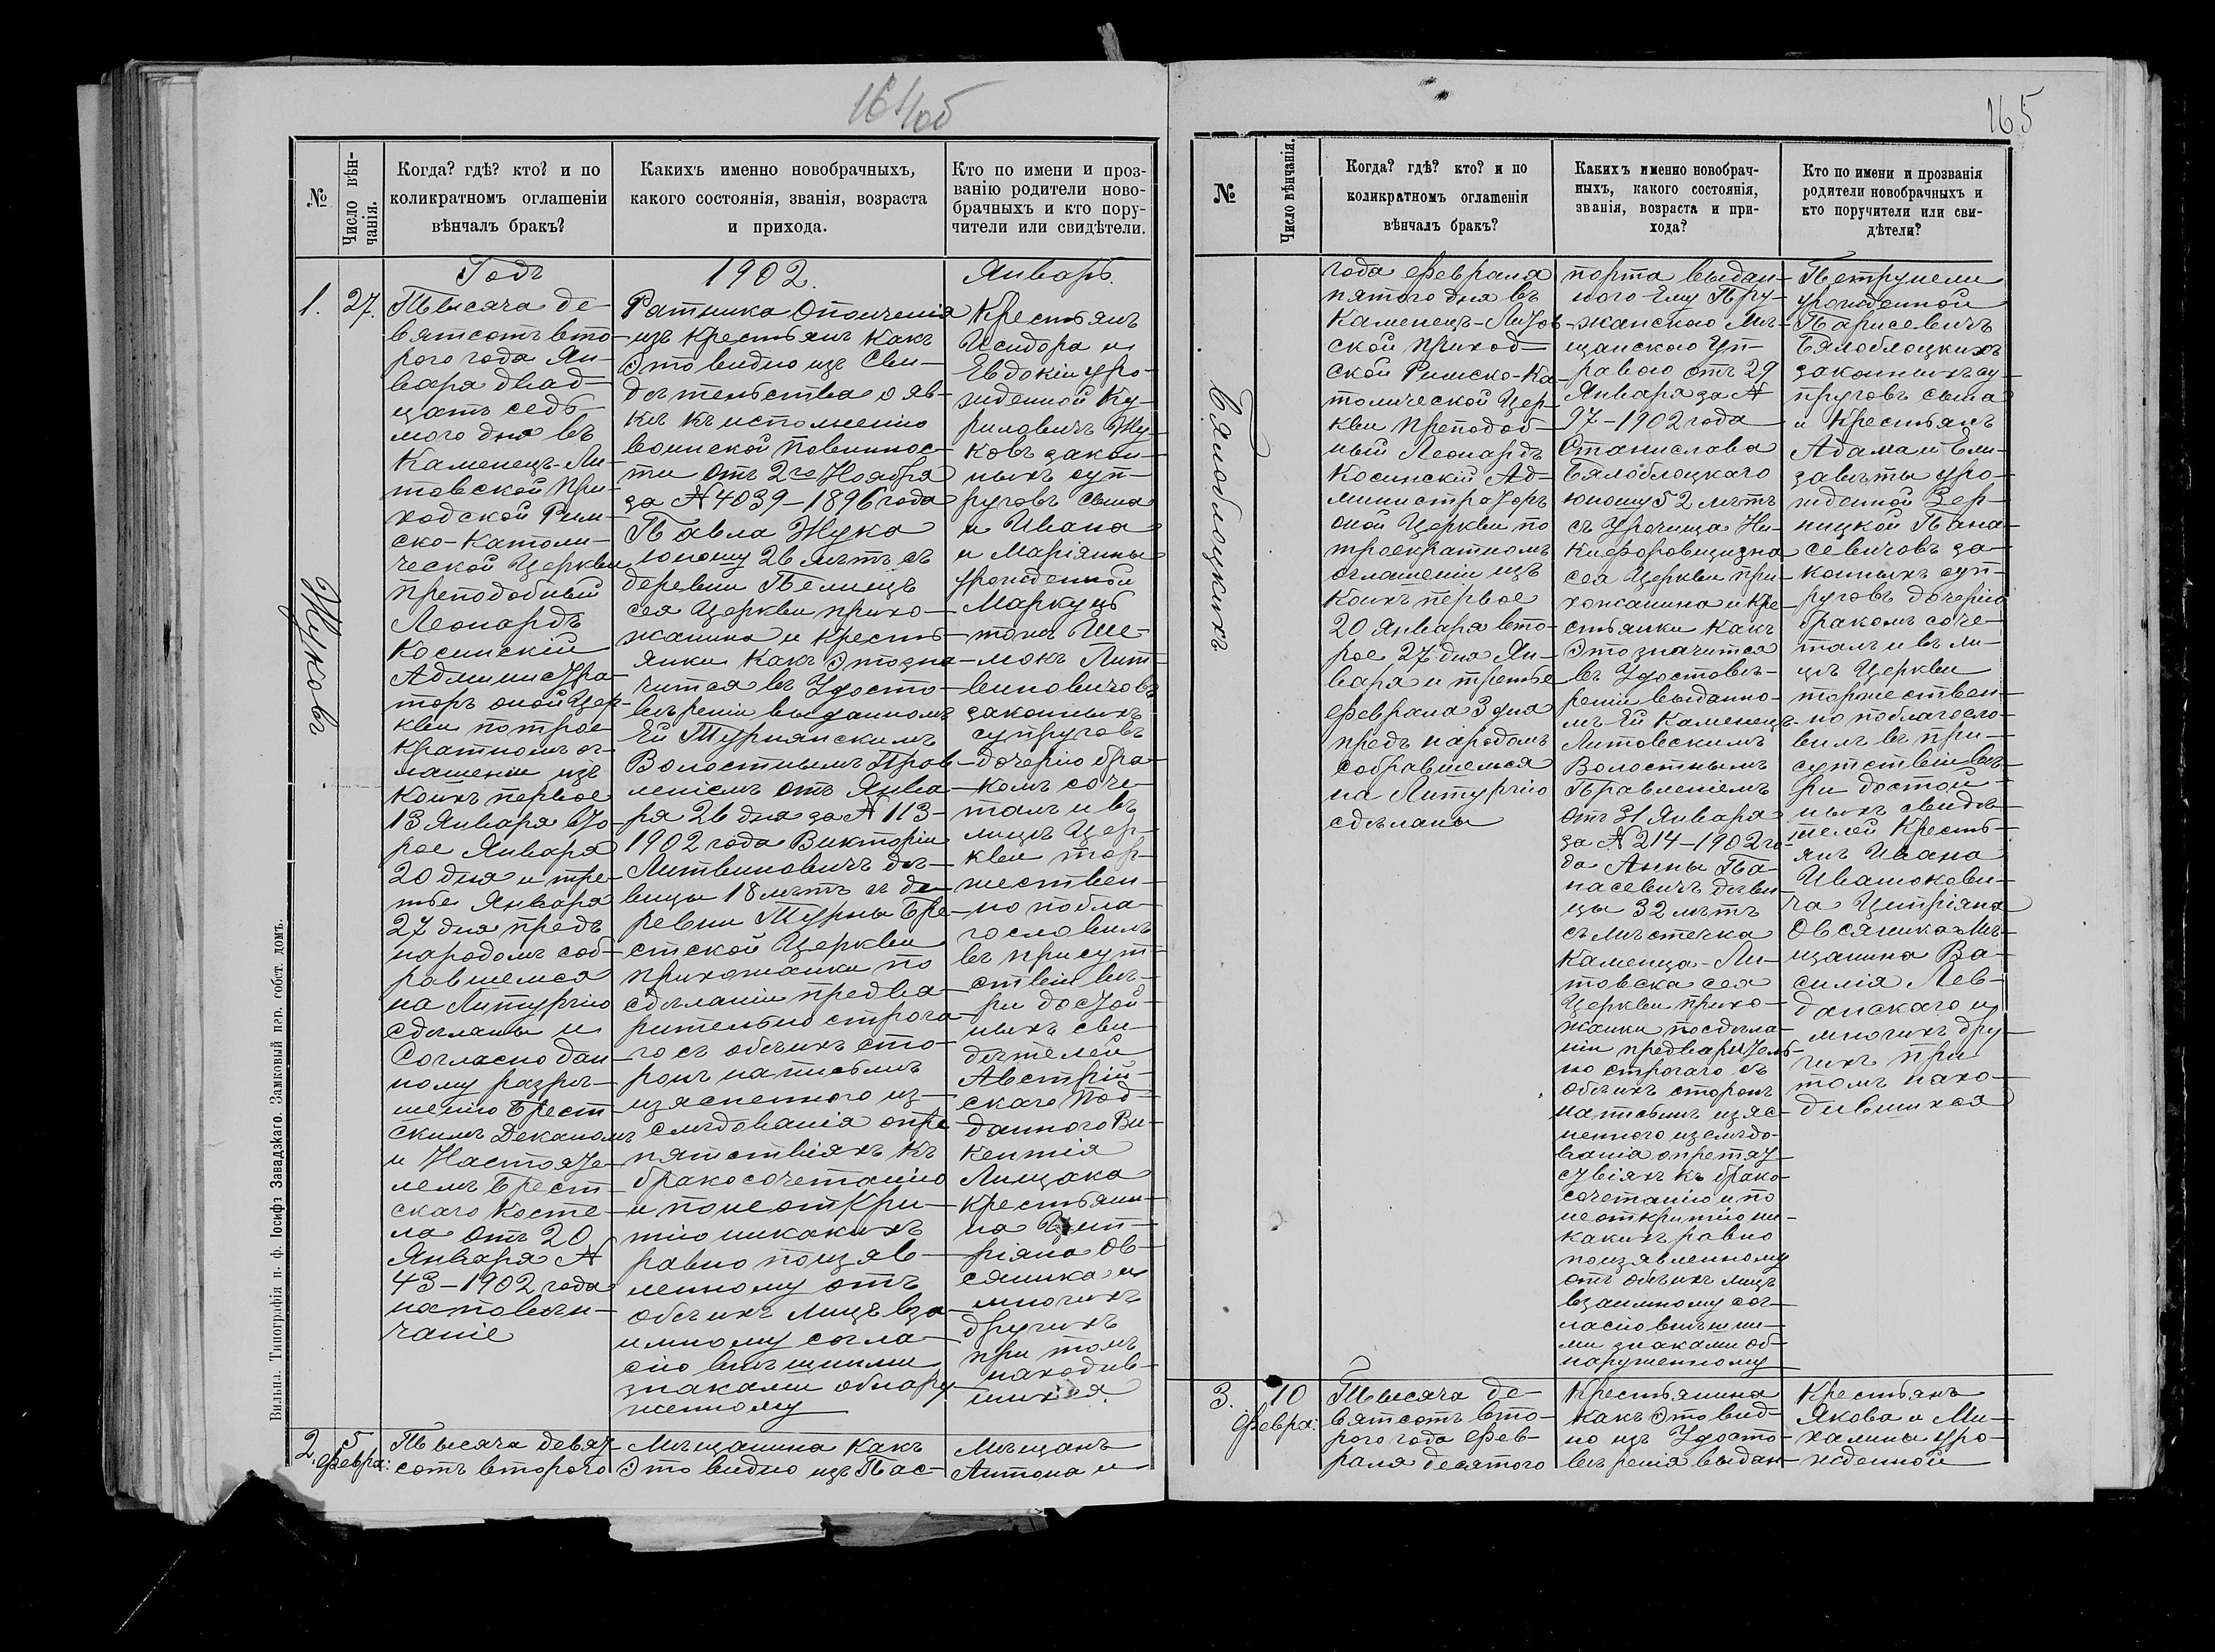 164/об
№
Число вѣн-
чанія.
Когда? гдѣ? кто? и по
коликратномъ оглашеніи
вѣнчалъ бракъ?
Какихъ именно новобрачныхъ,
какого состоянія, званія, возраста
и прихода.
Кто по имени и проз-
ванію родители ново-
брачныхъ и кто пору-
чители или свидѣтели.
Годъ
1902.
Январь.
1.
27.
Жуковъ
Тысяча де-
вятсотъ вто-
рого года Ян-
варя двад-
цать седь-
мого дня въ
Каменецъ-Ли-
товской При-
ходской Рим-
ско-Католи-
ческой Церкви
преподобный
Леонардъ
Косинскій
Администра-
торъ оной Цер-
кви по трое
кратномъ ог-
лашеніи изъ
коихъ первое
13 Января вто-
рое Января
20 дня и тре-
тье Января
27 дня предъ
народомъ соб-
равшемся
на Литургію
сдѣланы и
Согласно дан
ному разрѣ-
шенію Брест
скимъ Деканомъ
и Настояте-
лемъ Брест-
скаго Косте-
ла отъ 20
Января №
43-1902 года
на повѣн-
чаніе
Ратника Ополченія
изъ Крестьянъ какъ
это видно изъ Сви-
дѣтельства о яв-
кѣ къ исполненію
воинской повиннос-
ти отъ 2го Ноября
за № 4039-1896 года
Павла Жука
юношу 26 лѣтъ съ
деревни Пелищъ
сея Церкви прихо-
жанина и Кресть-
янки какъ это зна-
чится въ Удосто-
вѣреніи выданномъ
Ей Турнянскимъ
Волостнымъ Прав-
леніемъ отъ Янва-
ря 26 дня за № 113-
1902 года Викторіи
Литвиновичъ дѣ-
вицы 18 лѣтъ съ де-
ревни Турны Бре-
стской Церкви
прихожанки по
сдѣланіи предва-
рительно строга-
го съ обѣихъ сто-
ронъ на письмѣ
изясненного из-
слѣдованія опре
пятствіяхъ къ
бракосочетанію
и по не откры-
тію никакихъ
равно по изяв-
ленному отъ
обѣихъ лицъ вза
имному согла-
сію внѣшними
знаками обнару
женному
Крестьянъ
Исидора и
Евдокіи уро-
жденной Ку-
риловичъ Жу-
ковъ закон-
ныхъ суп-
руговъ сына
и Ивана
и Маріянны
урожденной
Маркуцъ
томъ Ше-
мокъ Лит-
виновичовъ
законныхъ
супруговъ
дочерію бра-
комъ соче-
талъ и въ
лицѣ Цер-
кви тор-
жествен-
но побла-
гословилъ
въ присут-
ствіи вѣ-
ри достой-
ныхъ сви-
дѣтелей
Австрій-
скаго Под-
данного Ви-
кентія
Лищака
Крестьяни-
на Цип-
ріяна Ов-
сяника и
многихъ
другихъ
при томъ
находив-
шихся.
2.
5
Февра:
Тысяча девят-
сотъ второго
Мѣщанина какъ
это видно изъ Пас-
Мѣщанъ
Антона и
Вильна. Типографія п. ф. Іосифъ Завадзкаго. Замковый пер. собст. домъ.
165
№
Число вѣнчанія.
Когда? гдѣ? кто? и по
коликратномъ оглашеніи
вѣнчалъ бракъ?
Какихъ именно новобрач-
ныхъ, какого состоянія,
званія, возраста и при-
хода?
Кто по имени и прозванія
родители новобрачныхъ и
кто поручители или сви-
дѣтели?
Бялоблоцкихъ
года Февраля
пятого дня въ
Каменецъ-Литов-
ской приход-
ской Римско-Ка-
толической Цер-
кви преподоб
ный Леонардъ
Косинскій Ад-
министраторъ
оной Церкви по
троекратномъ
оглашеніи изъ
коихъ первое
20 Января вто-
рое 27 дня Ян-
варя и третье
Февраля 3 дня
предъ народомъ
собравшемся
на Литургію
сдѣланы
порта выдан-
ного Ему Пру-
жанскою Мѣ-
щанскою Уп-
равою отъ 29
Января за №
97-1902 года
Станислава
Бялоблоцкаго
юношу 52 лѣтъ
съ Урочища Ни-
кифоровщизна
сея Церкви при-
хожанина и Кре-
стьянки какъ
это значится
въ Удостовѣ-
реніи выданно-
мъ Ей Каменецъ-
Литовскимъ
Волостнымъ
Правленіемъ
отъ 31 Января
за № 214-1902 го-
да Анны Па-
насевичъ дѣви
цы 32 лѣтъ
съ мѣстечка
Каменца-Ли-
товска сея
Церкви прихо-
жанки по сдѣла-
ніи предваритель-
но строгаго съ
обѣихъ сторонъ
на письмѣ изяс-
ненного изслѣдо-
ванія о препят-
ствіяхъ къ брако-
сочетанію и по
не открытію ни-
какихъ равно
по изявленному
отъ обѣихъ лицъ
взаимному сог-
ласію внѣшни-
ми знаками об-
наруженному
Петрунели
урожденной
Парисевичъ
Бялоблоцкихъ
законныхъ су-
пруговъ сына
и Крестьянъ
Адама и Ели-
заветы уро-
жденной Зер-
ницкой Пана-
севичовъ за-
конныхъ суп-
руговъ дочерію
бракомъ соче-
талъ и въ ли-
цѣ Церкви
торжествен-
но поблагосло-
вилъ въ при-
сутствіи вѣ-
ри достой-
ныхъ свидѣ-
телей Кресть-
янъ Ивана
Ивашокови-
ча Ципріяна
Овсяника Мѣ-
щанина Ва-
силія Лев-
данскаго и
многихъ дру-
гихъ при
томъ нахо-
дившихся
3.
10
Февра:
Тысяча де-
вятсотъ вто-
рого года Фев-
раля десятого
Крестьянина
какъ это вид-
но изъ Удосто-
вѣренія выдан-
Крестьянъ
Якова и Ми-
халины уро-
жденной